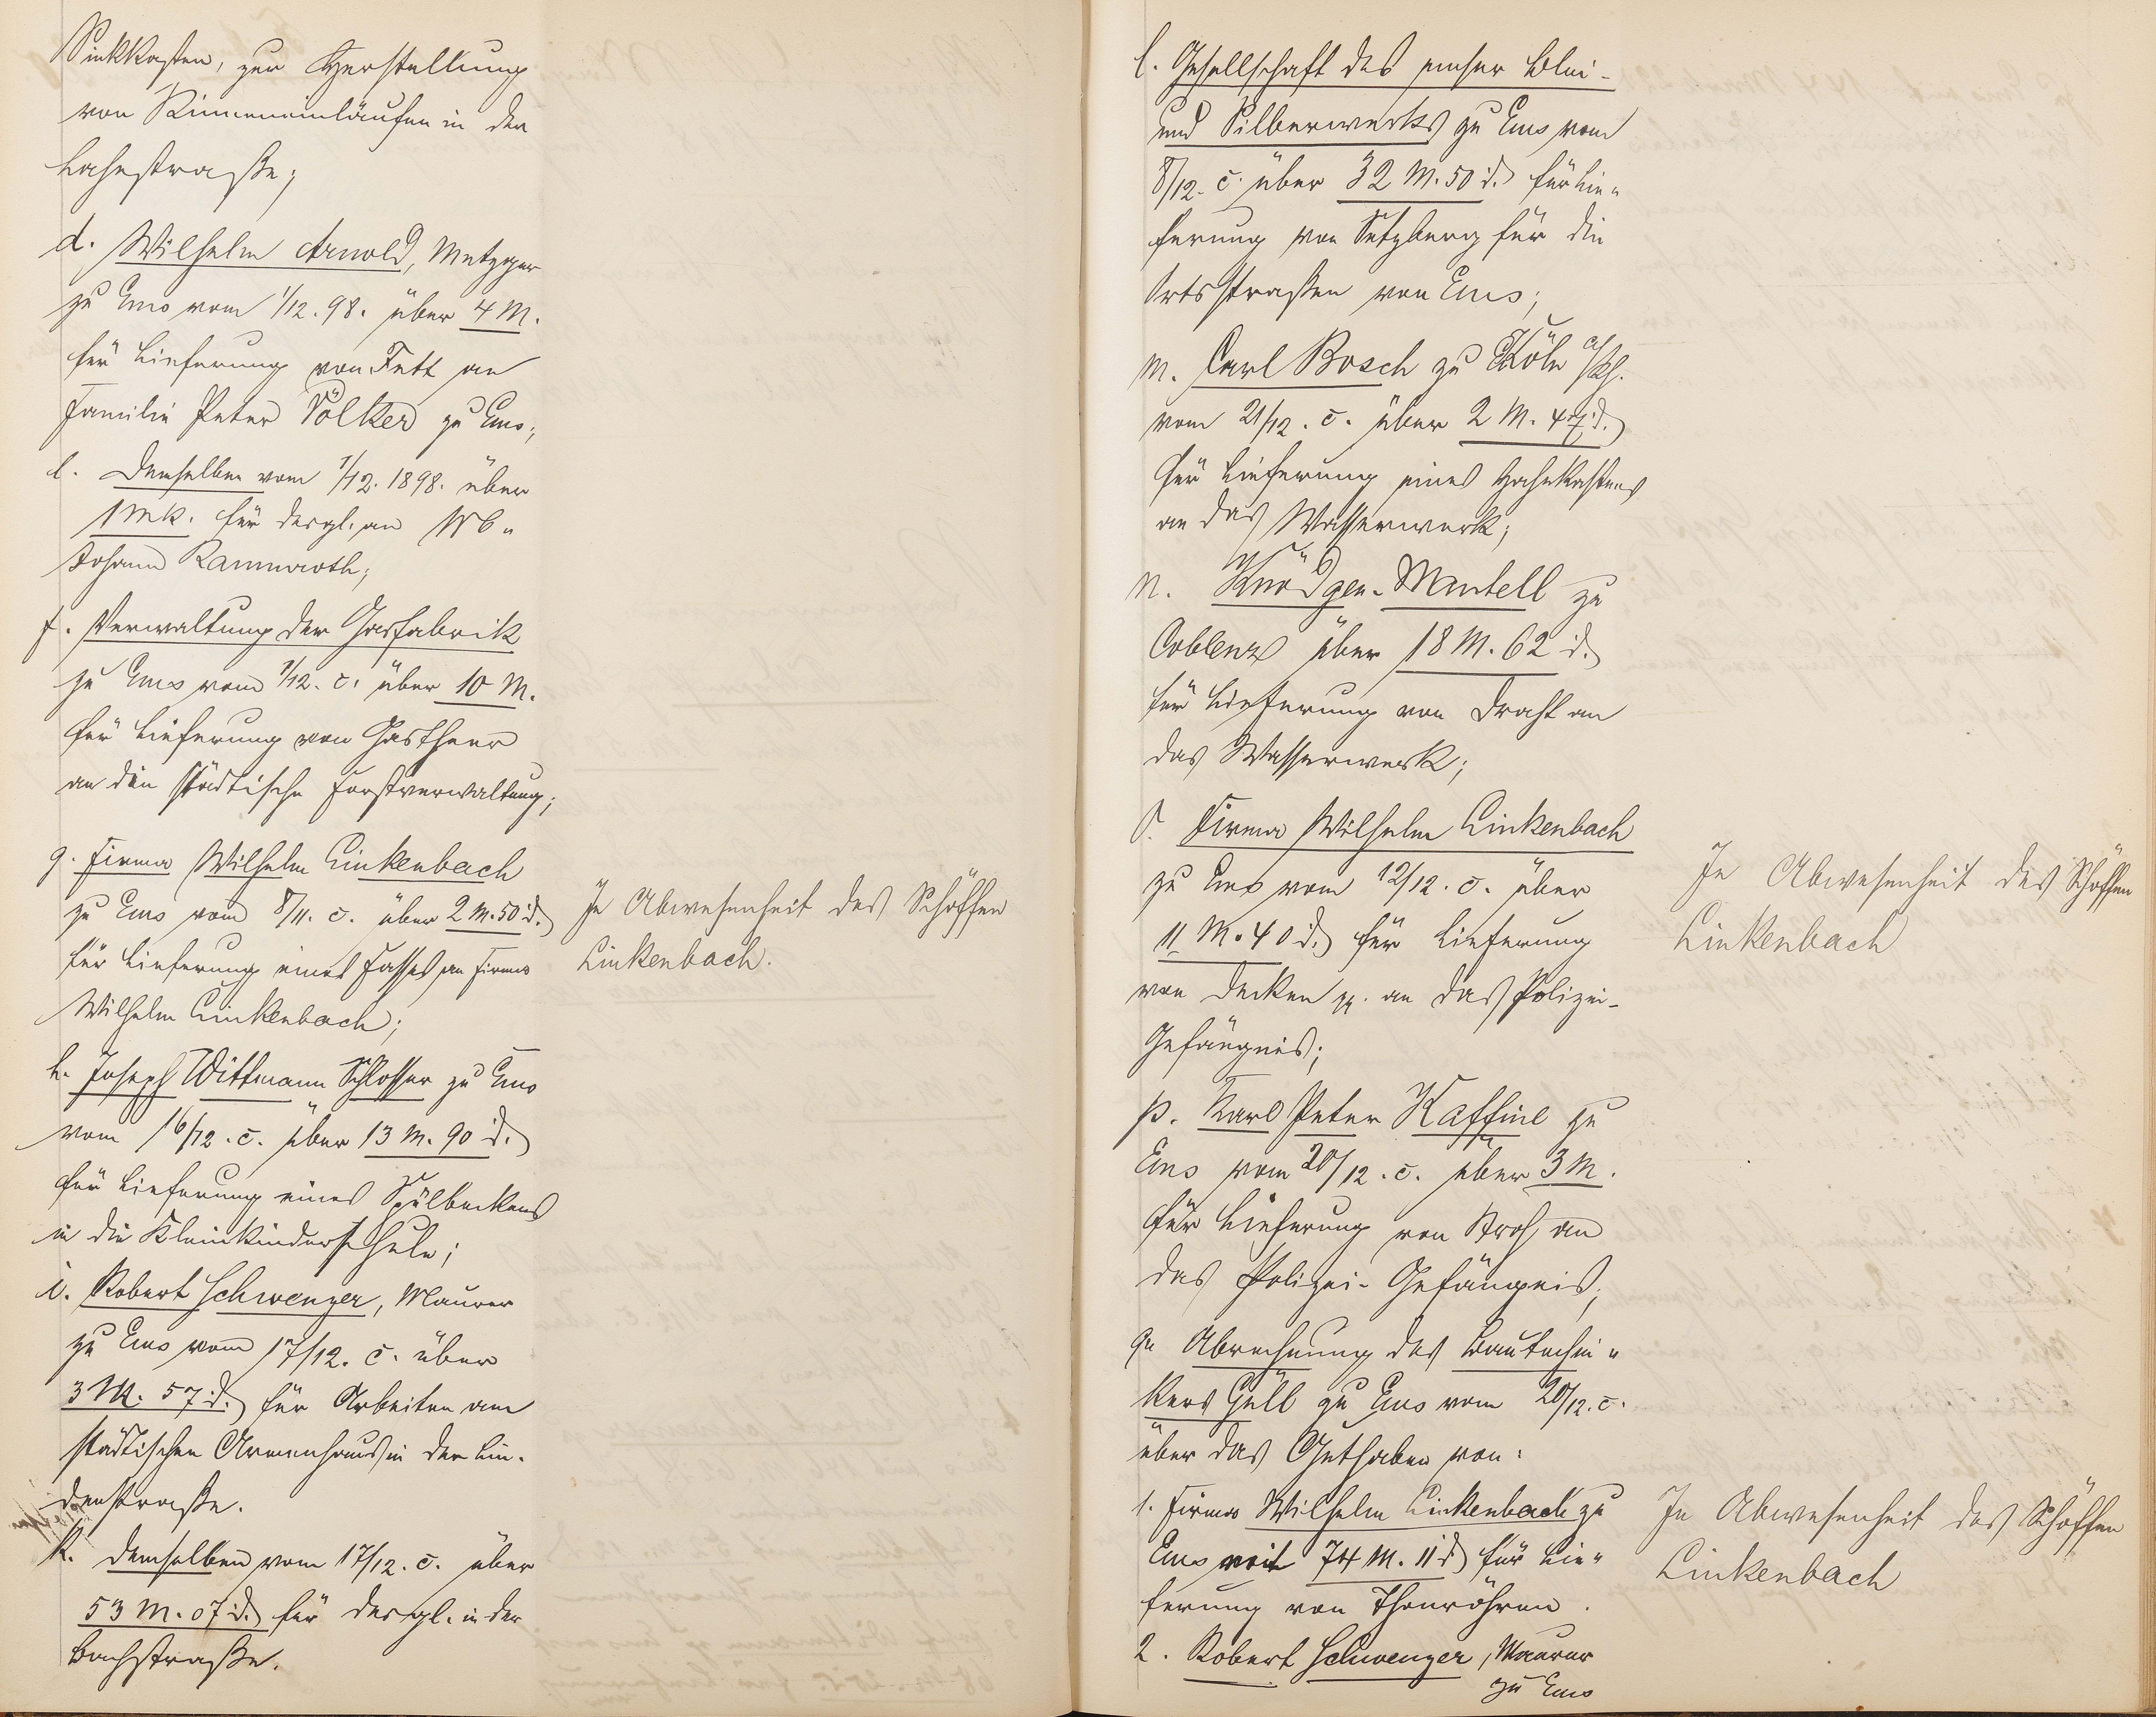 Sinkkasten, zur Herstellung
von Rinneneinläufen in der
Lahnstraße;
d. Wilhelm Arnold, Metzger
zu Ems vom 1/12. 98. über 4 M.
für Lieferung von Fett an
Familie Peter Völker zu Ems;
e. Demselben vom 1/12. 1898. über
1 Mk. für desgl. an Wb.
Johann Rannwoth;
f. Verwaltung der Gasfabrik
zu Ems vom 1/12. c. über 10 M.
für Lieferung von Gastheer
an die städtische Forstverwaltung;
g. Firma Wilhelm Linkenbach
zu Ems vom 8/11. c. über 2 M. 50 d.
für Lieferung eines Fasses an Firma
Wilhelm Linkenbach;
In Abwesenheit des Schöffen
Linkenbach.
h. Joseph Wittmann Schlosser zu Ems
vom 16/12. c. über 13 M. 90 d.
für Lieferung eines Spülbeckens
in die Kleinkinderschule;
i. Robert Schwenzer, Maurer
zu Ems vom 17/12. c. über
3 M. 57 d. für Arbeiten am
städtischen Armenhaus in der Lin-
denstraße.
k. Demselben vom 17/12. c. über
53 M. 07 d. für desgl. in der
Bachstraße.
l. Gesellschaft des emser Blei-
und Silberwerks zu Ems vom
8/12. c. über 32 M. 50 d. für Lie-
ferung von Setzberg für die
Ortsstraßen von Ems;
m. Carl Bosch zu Köln a/Rh.
vom 21/12. c. über 2 M. 47 d.
für Lieferung eines Hahnkastens
an das Wasserwerk;
n. Knödgen-Mantell zu
Coblenz über 18 M. 62 d.
für Lieferung von Draht an
das Wasserwerk;
o. Firma Wilhelm Linkenbach
zu Ems vom 12/12. c. über
11 M. 40 d. für Lieferung
von Decken pp. an das Polizei-
Gefängnis;
In Abwesenheit des Schöffen
Linkenbach
p. Karl Peter Kaffine zu
Ems vom 20/12. c. über 3 M.
für Lieferung von Stroh an
das Polizei-Gefängnis;
q. Abrechnung des Bautechni-
kers Güll zu Ems vom 20/12. c.
über das Guthaben von:
1. Firma Wilhelm Linkenbach zu
Ems mit 74 M. 11 d. für Lie-
ferung von Thonröhren.
In Abwesenheit des Schöffen
Linkenbach
2. Robert Schwenzer, Maurer
zu Ems